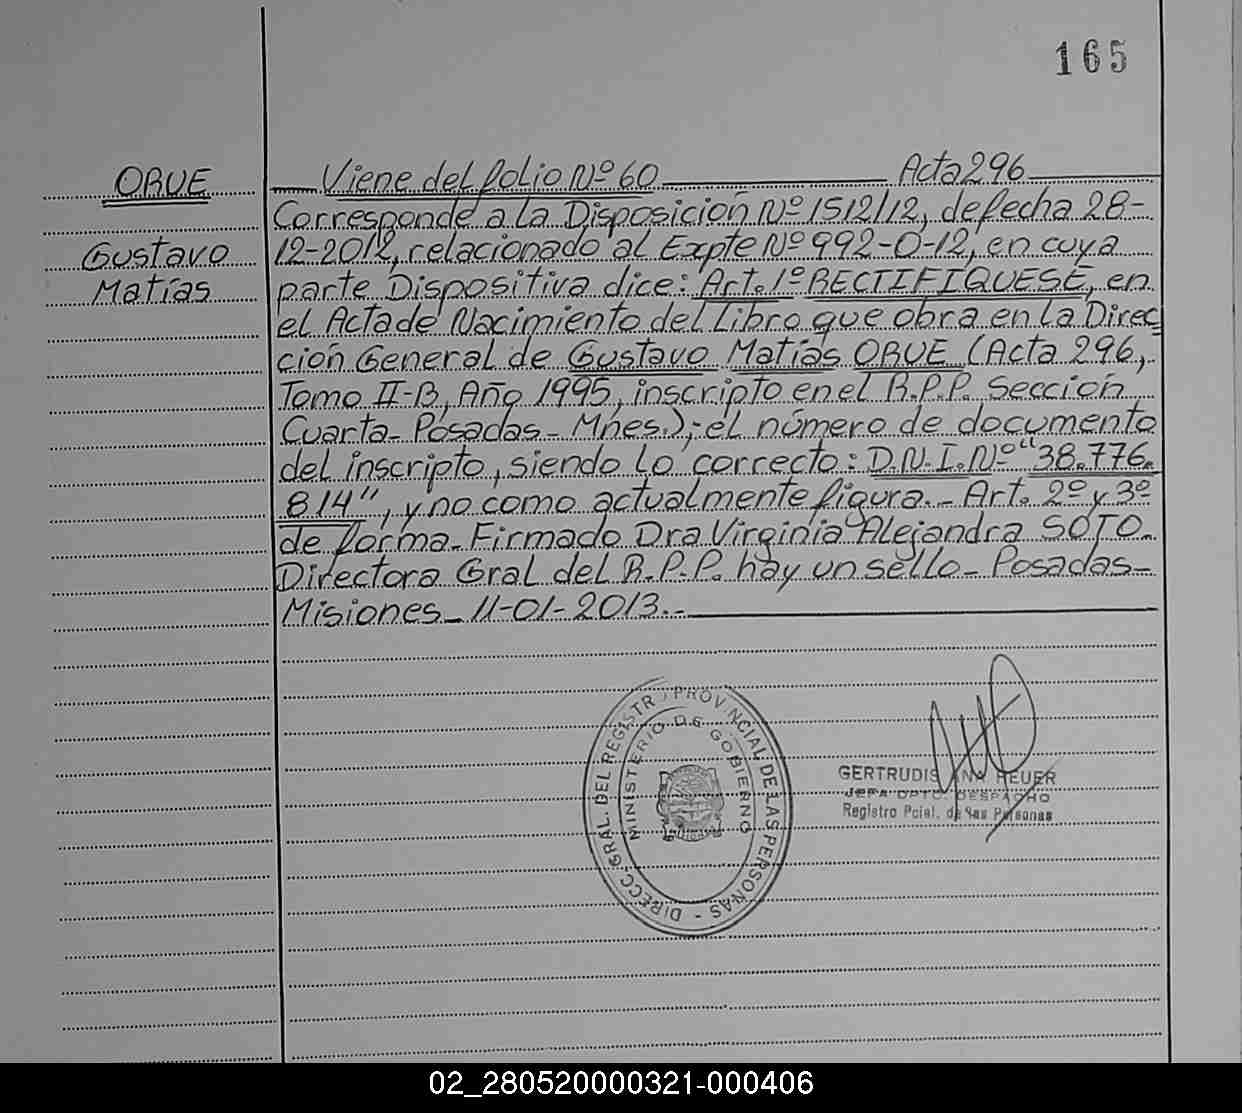 165
ORUE
Gustavo
Matías
Viene del folio Nº 60 Acta 296
Corresponde a la Disposición Nº 1512/12, de fecha 28-
12-2012, relacionado al Expte Nº 992-O-12, en cuya
parte Dispositiva dice: Art. 1º RECTIFIQUESE, en
el Acta de Nacimiento del Libro que obra en la Direc-
ción General de Gustavo Matías ORUE (Acta 296,
Tomo II-B, Año 1995, inscripto en el R.P.P. Sección
Cuarta- Posadas- Mnes.); el número de documento
del inscripto, siendo lo correcto: D.N.I. Nº "38.776.
814", y no como actualmente figura.- Art. 2º y 3º
de forma- Firmado Dra Virginia Alejandra SOTO.
Directora Gral del R.P.P. hay un sello- Posadas-
Misiones- 11-01-2013.-
DIRECC. GRAL. DEL REGISTR PROVINCIAL DE LAS PERSONAS -
MINISTERIO DE GOBIERNO
GERTRUDIS ANA REUER
JEFA DPTO. DESPACHO
Registro Pcial. de las Personas
02_280520000321-000406